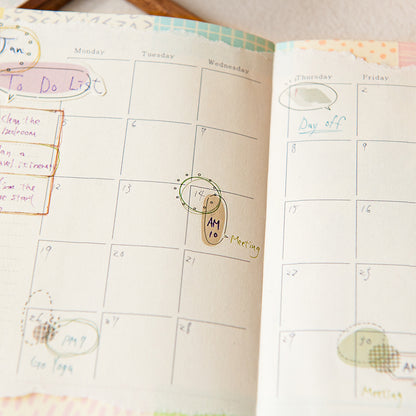 Jan
Monday Tuesday Wednesday Thursday Friday
To Do List
2
Day off
clean the
Bedroom
5 6 7 8 9
Plan a
travel itinerary
the
12 13 14 15 16
AM
10
Meeting
19 20 21 22 23
26 27 28 29 30
PM 7
Go Yoga
AM
Meeting